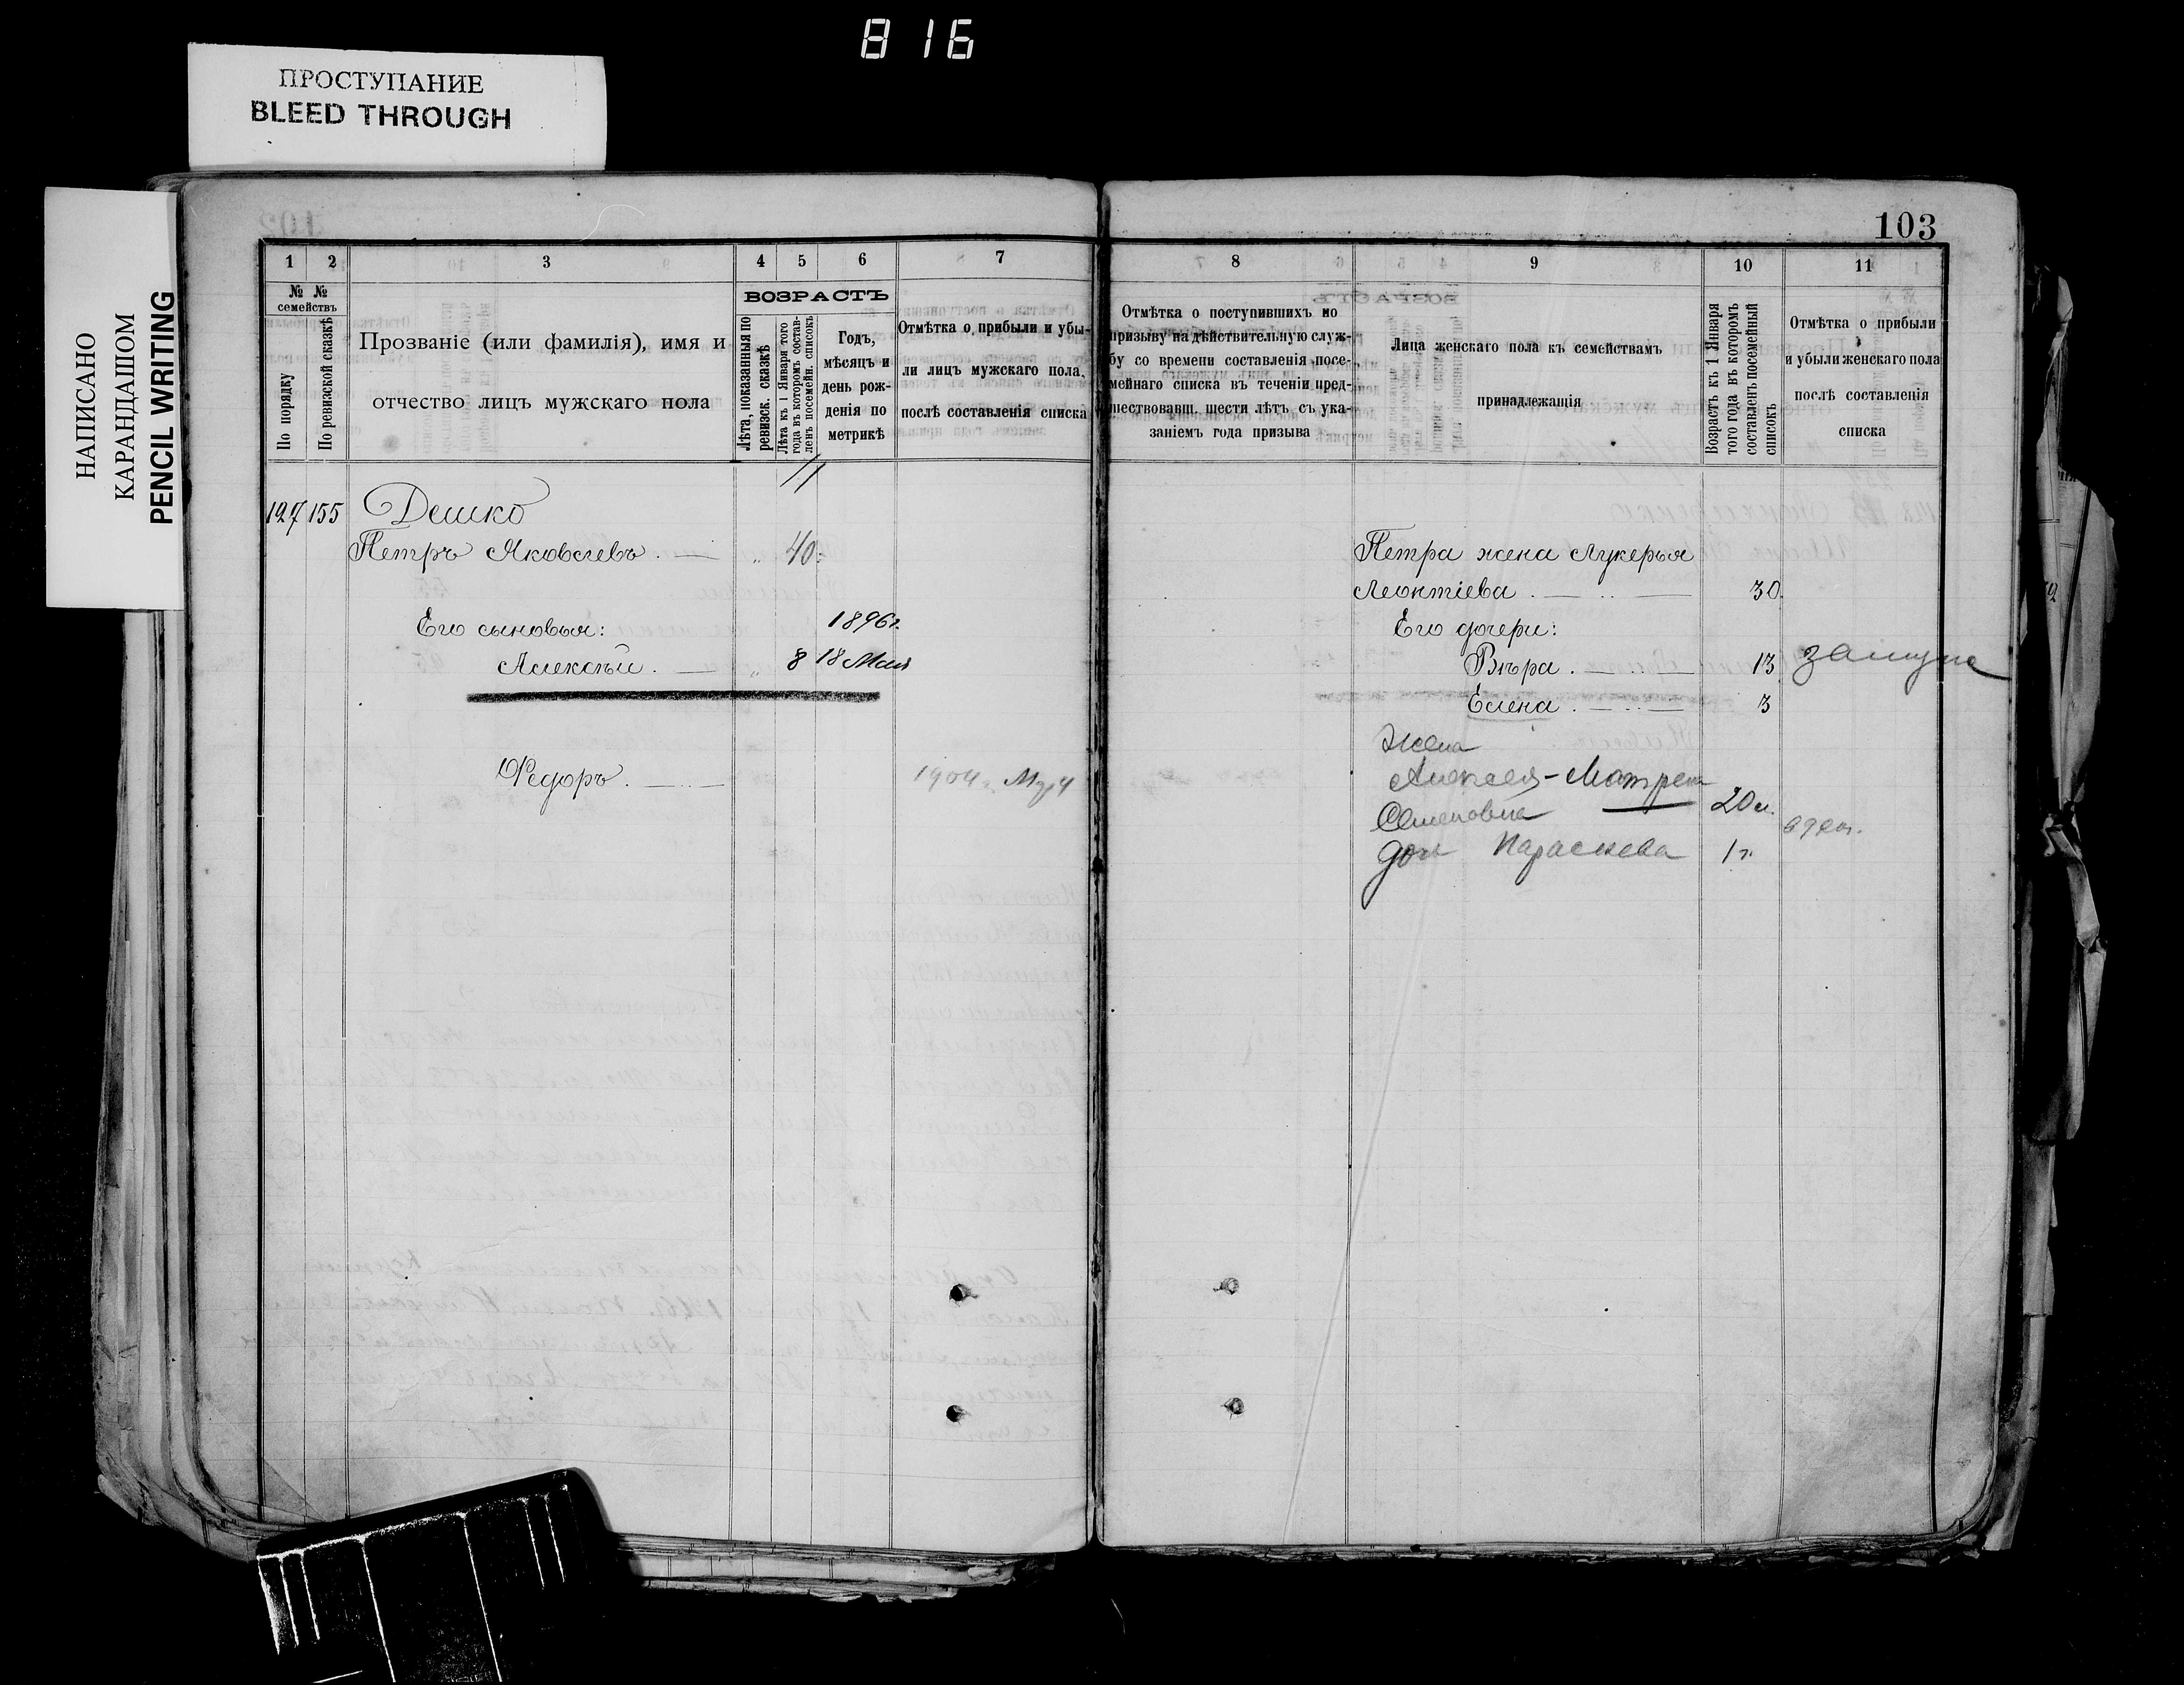 816
ПРОСТУПАНИЕ
BLEED THROUGH
НАПИСАНО
КАРАНДАШОМ
PENCIL WRITING
103
1 2 3 4 5 6 7
№ № семействъ
По порядку
По ревизской сказкѣ
Прозваніе (или фамилія), имя и
отчество лицъ мужскаго пола
ВОЗРАСТЪ
Лѣта, показанныя по
ревизск. сказкѣ
Лѣта къ 1 Января того
года въ которомъ состав-
ленъ посемейн. списокъ
Годъ,
мѣсяцъ и
день рож-
денія по
метрикѣ
Отмѣтка о прибыли и убы-
ли лицъ мужскаго пола,
послѣ составленія списка
127 155 Дешко
Петръ Яковлевъ . — „ 40.
Его сыновья: 1896 г.
Алексѣй . — „ 8 18 Мая
Ѳедоръ . — 1904 г.
8 9 10 11
Отмѣтка о поступившихъ по
призыву на дѣйствительную служ-
бу со времени составленія посе-
мейнаго списка въ теченіи пред-
шествовавш. шести лѣтъ съ ука-
заніемъ года призыва
Лица женскаго пола къ семействамъ
принадлежащія
Возрастъ къ 1 Января
того года въ которомъ
составленъ посемейный
списокъ
Отмѣтка о прибыли
и убыли женскаго пола
послѣ составленія
списка
Петра жена Лукерья
Леонтіева . — .. — 30.
Его дочери:
Вѣра . — .. — 13 замуже
Елена . — .. — 3
Жена
Алексея - Матрена
Семеновна 20 л.
доч Параскева 1 г.